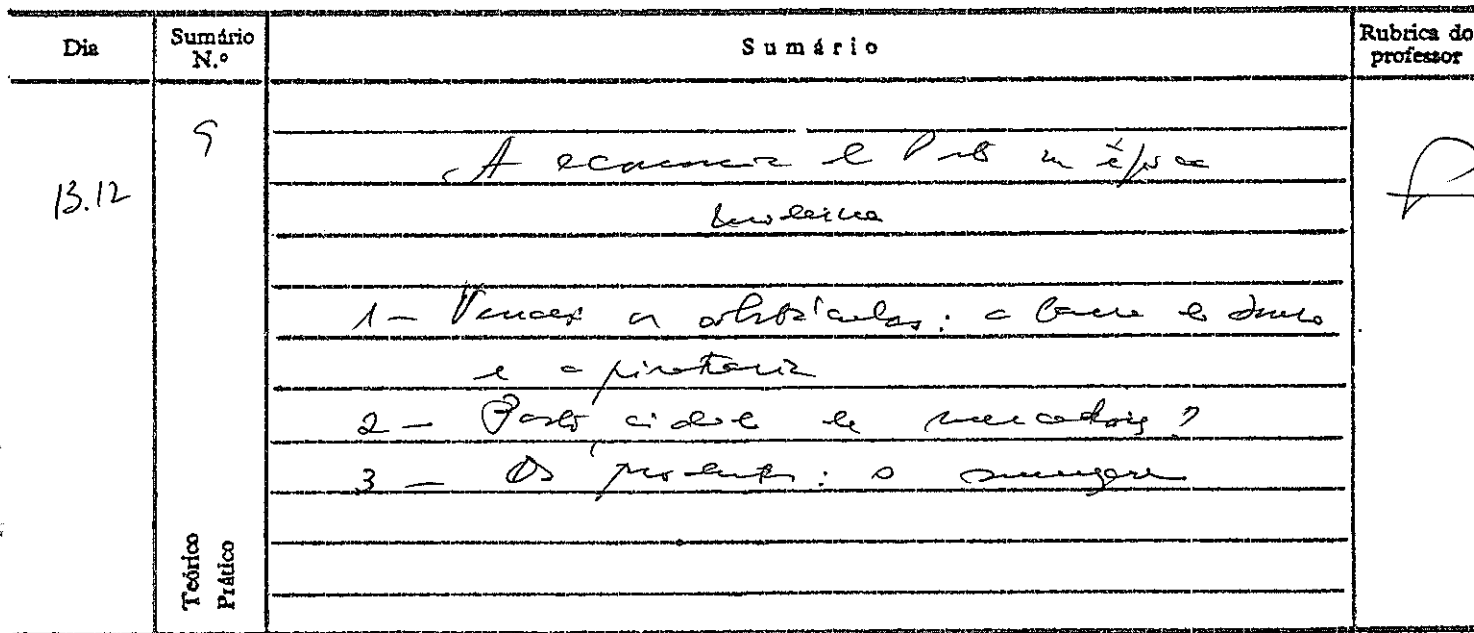 Dia
Sumário
N.º
Sumário
Rubrica do
professor
13.12
9
A economia do Porto na época
moderna
1 - Vencer os obstáculos: a barra do Douro
e a pirataria
2 - Porto, cidade de mercadores?
3 - Os produtos: o
Teórico
Prático